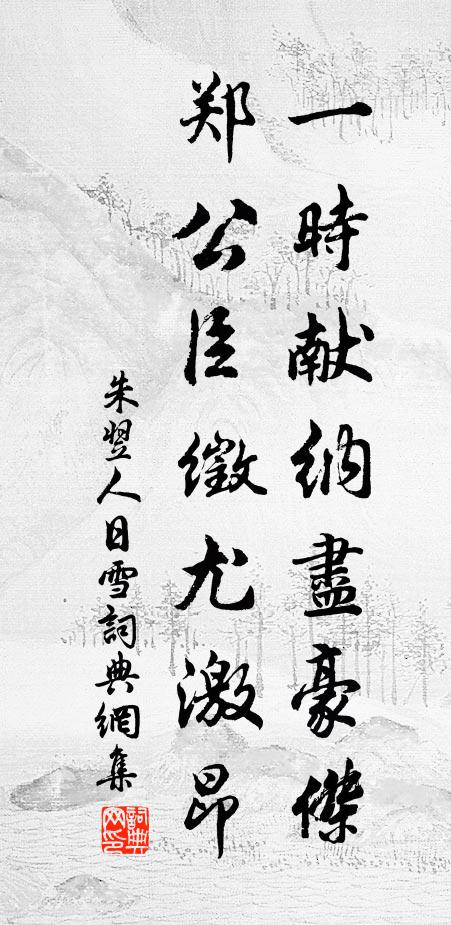 一時献納盡豪傑
郑公臣徵尤激昂
朱翌人日雪詞典網集
詞典网印